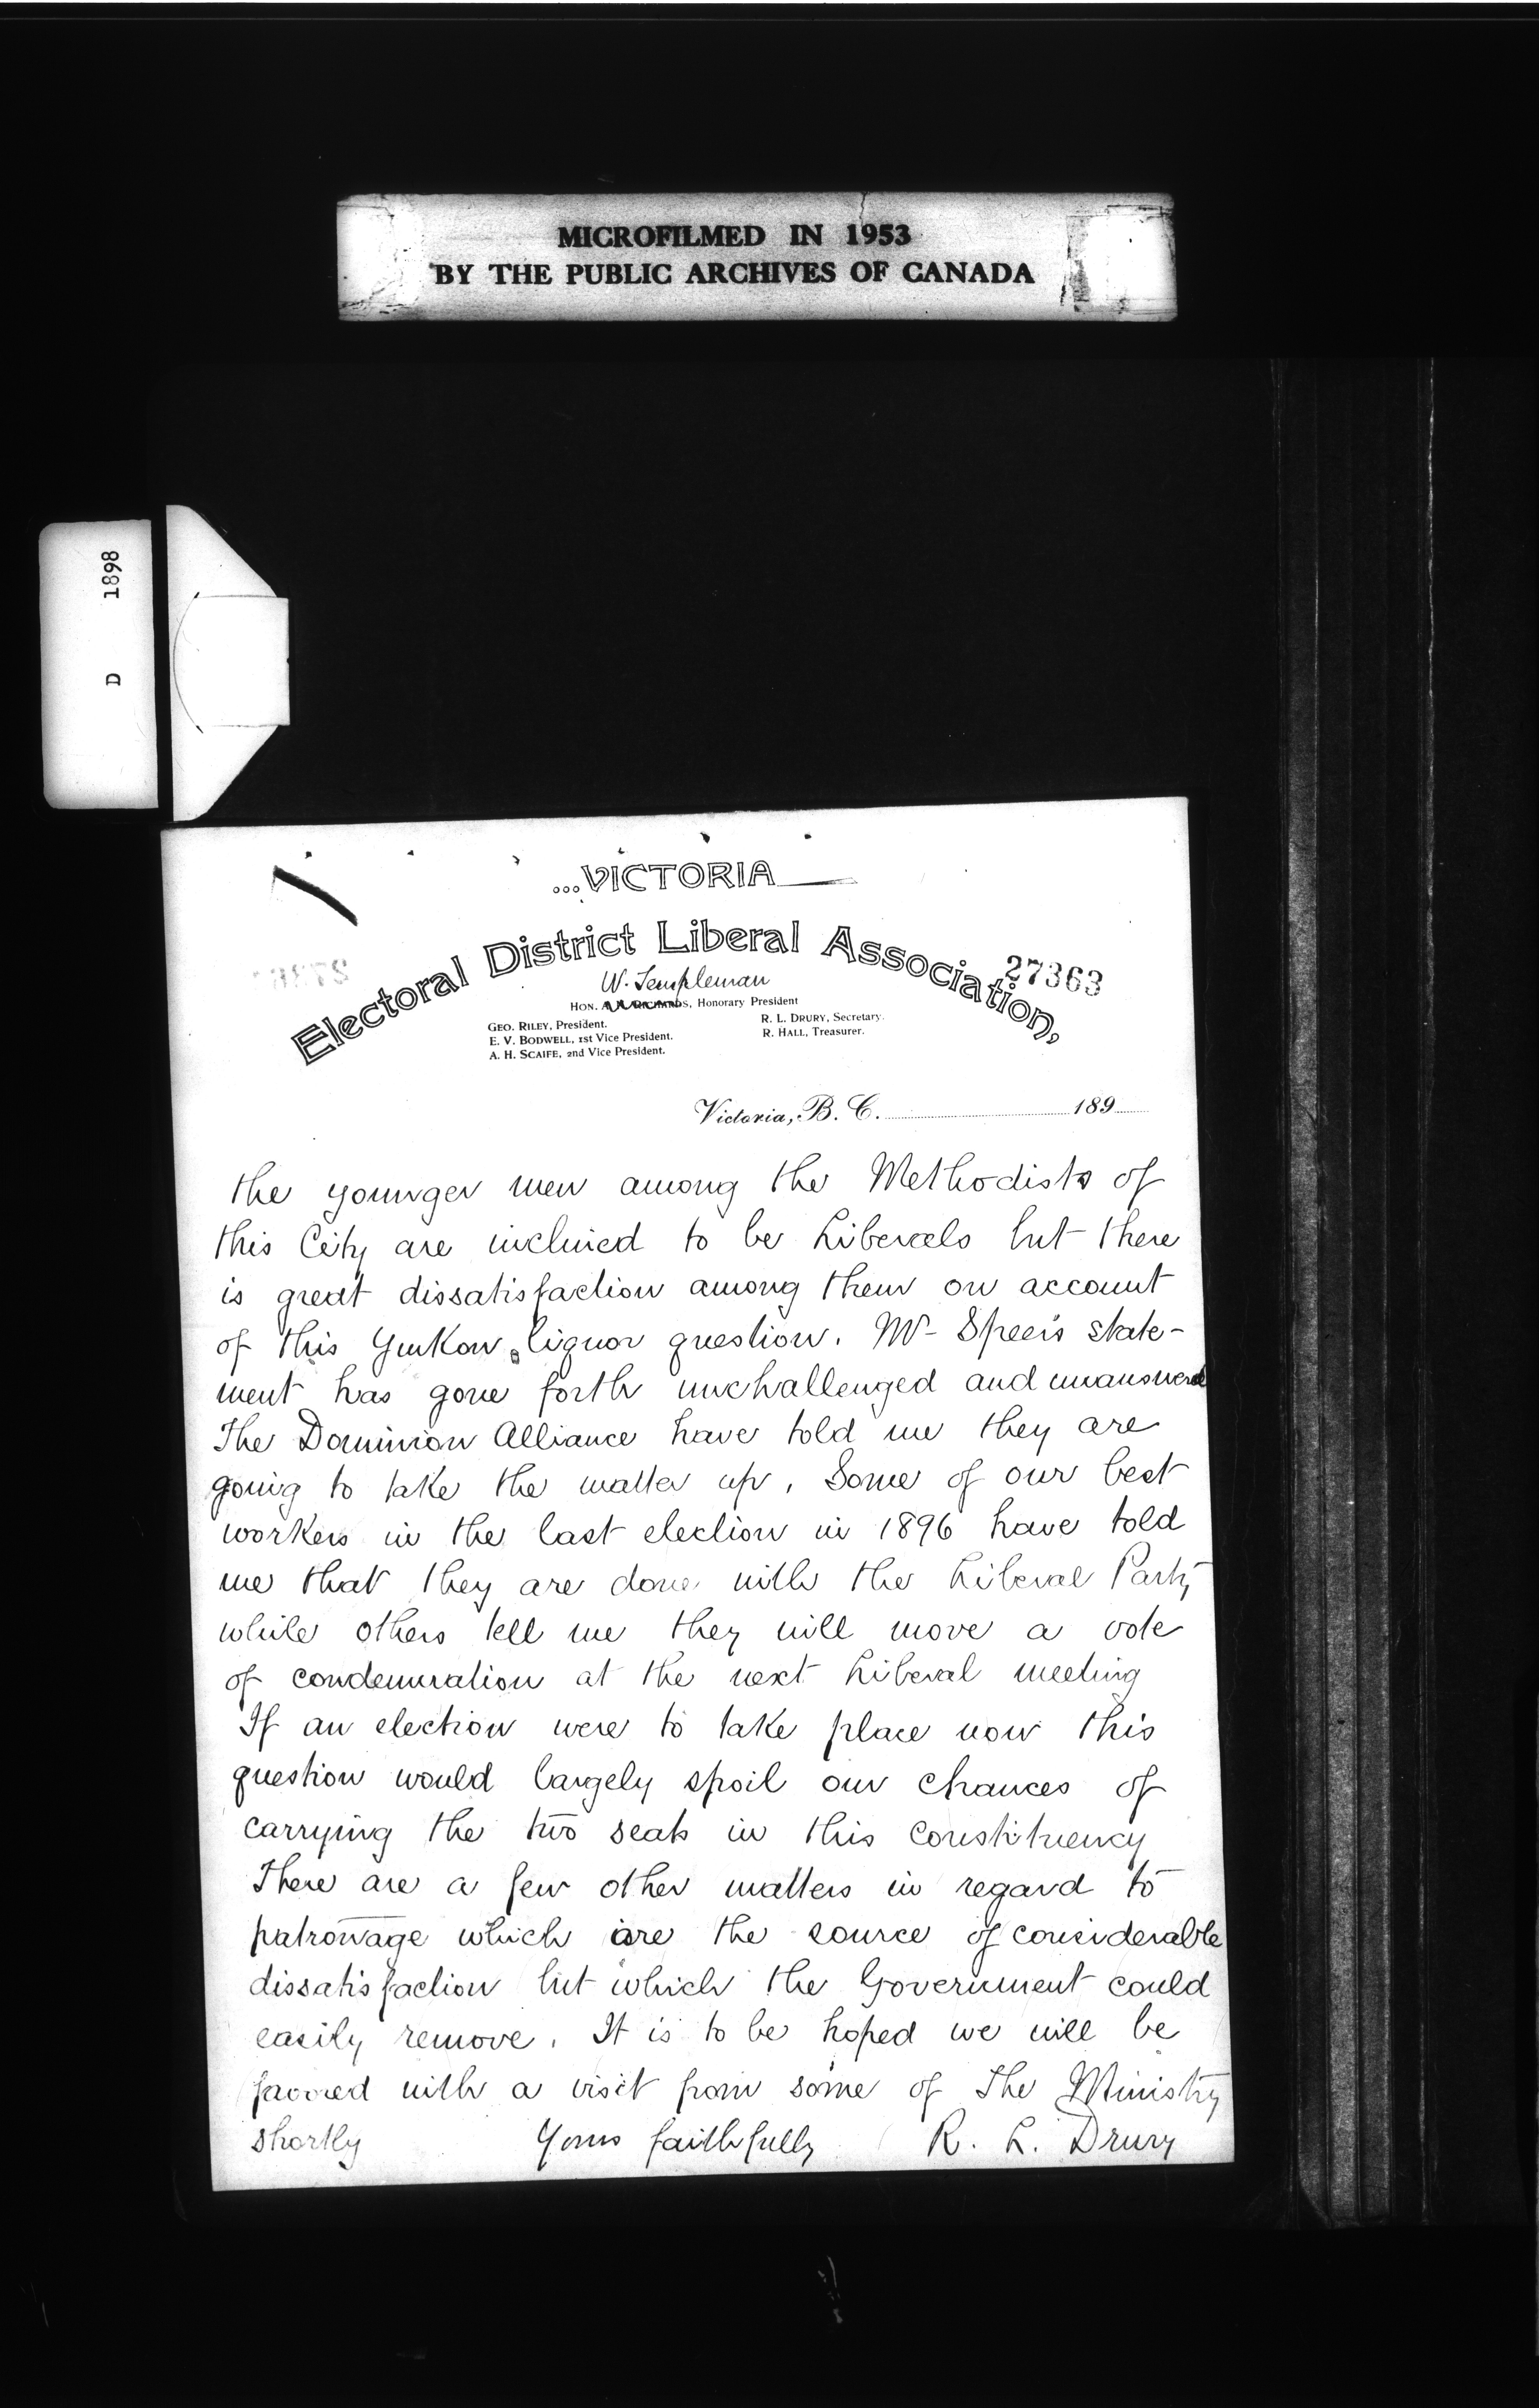 MICROFILMED IN 1953
BY THE PUBLIC ARCHIVES OF CANADA
D 1898
...VICTORIA
Electoral District Liberal Association,
27363
W. Templeman
HON. A. N. RICHARDS, Honorary President
GEO. RILEY, President.
E. V. BODWELL, 1st Vice President.
A. H. SCAIFE, 2nd Vice President.
R. L. DRURY, Secretary.
R. HALL, Treasurer.
Victoria, B. C. 189
the younger men among the Methodists of
this City are inclined to be Liberals but there
is great dissatisfaction among them on account
of this Yukon liquor question. Mr Speer's state-
ment has gone forth unchallenged and unanswered
The Dominion Alliance have told me they are
going to take the matter up. Some of our best
workers in the last election in 1896 have told
me that they are done with the Liberal Party
while others tell me they will move a vote
of condemnation at the next Liberal meeting
If an election were to take place now this
question would largely spoil our chances of
carrying the two seats in this constituency
There are a few other matters in regard to
patronage which are the source of considerable
dissatisfaction but which the Government could
easily remove. It is to be hoped we will be
favored with a visit from some of the Ministry
shortly Yours faithfully R. L. Drury